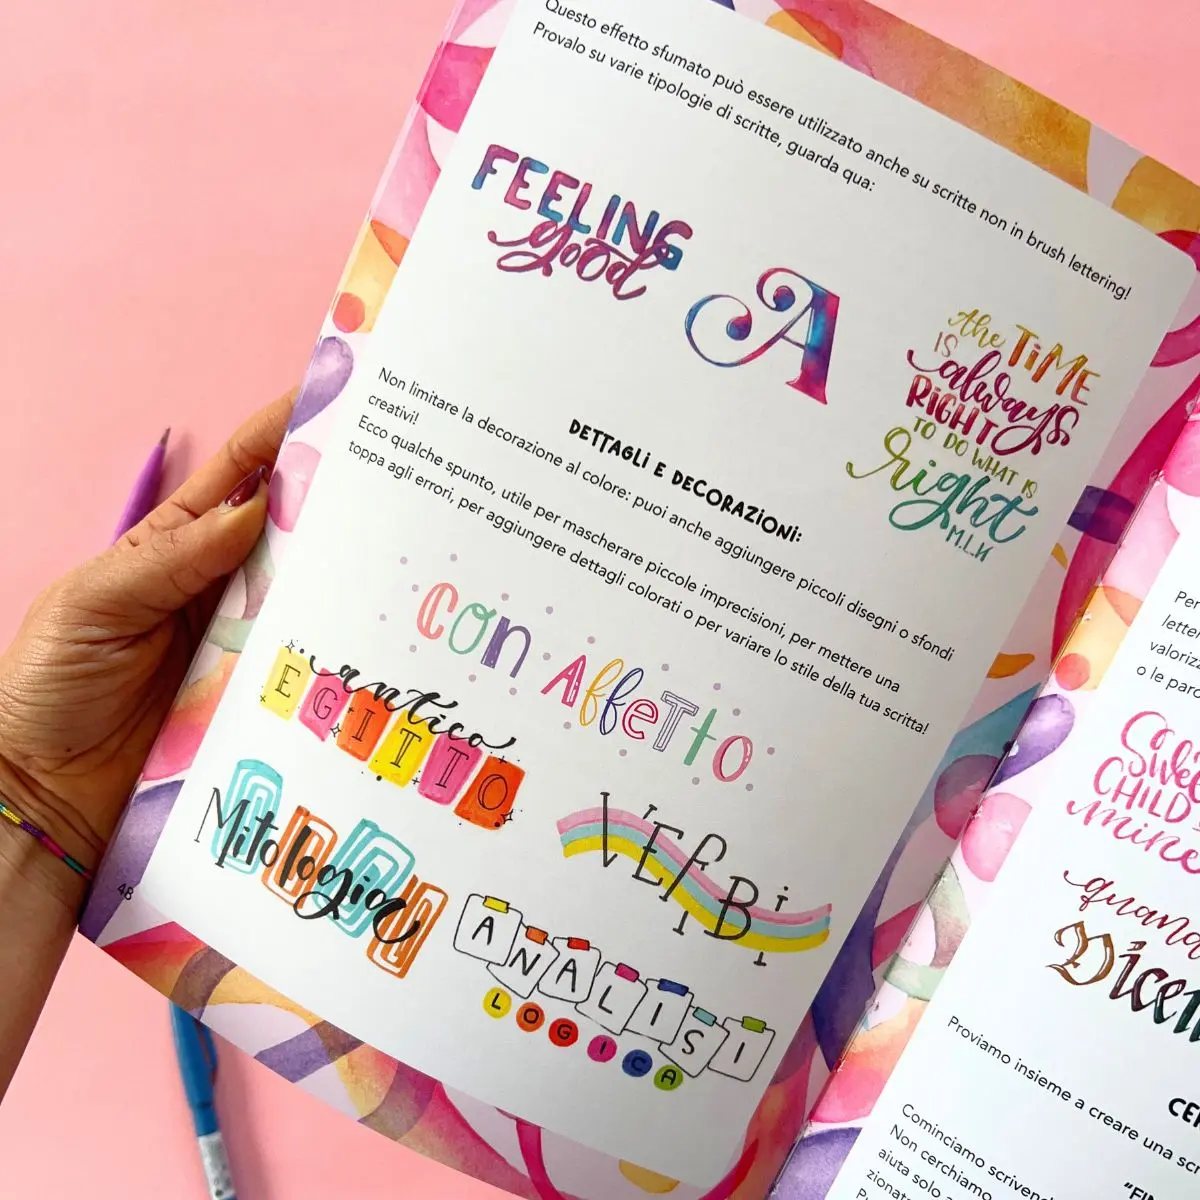 Questo effetto sfumato può essere utilizzato anche su scritte non in brush lettering!
Provalo su varie tipologie di scritte, guarda qua:
FEELING
good
A
the TiME
IS always
RiGHT
TO DO WHAT IS
right
M.L.K
DETTAGLI E DECORAZIONI:
Non limitare la decorazione al colore: puoi anche aggiungere piccoli disegni o sfondi
creativi!
Ecco qualche spunto, utile per mascherare piccole imprecisioni, per mettere una
toppa agli errori, per aggiungere dettagli colorati o per variare lo stile della tua scritta!
con AffeTto
antico
EGITTO
Mitologia
VERBI
ANALISI
LOGICA
48
Per
valoriz
o le paro
Sweet
CHILD
mine
Proviamo insieme a creare una scr
Cominciamo scrivend
Non cerchiamo
aiuta solo a